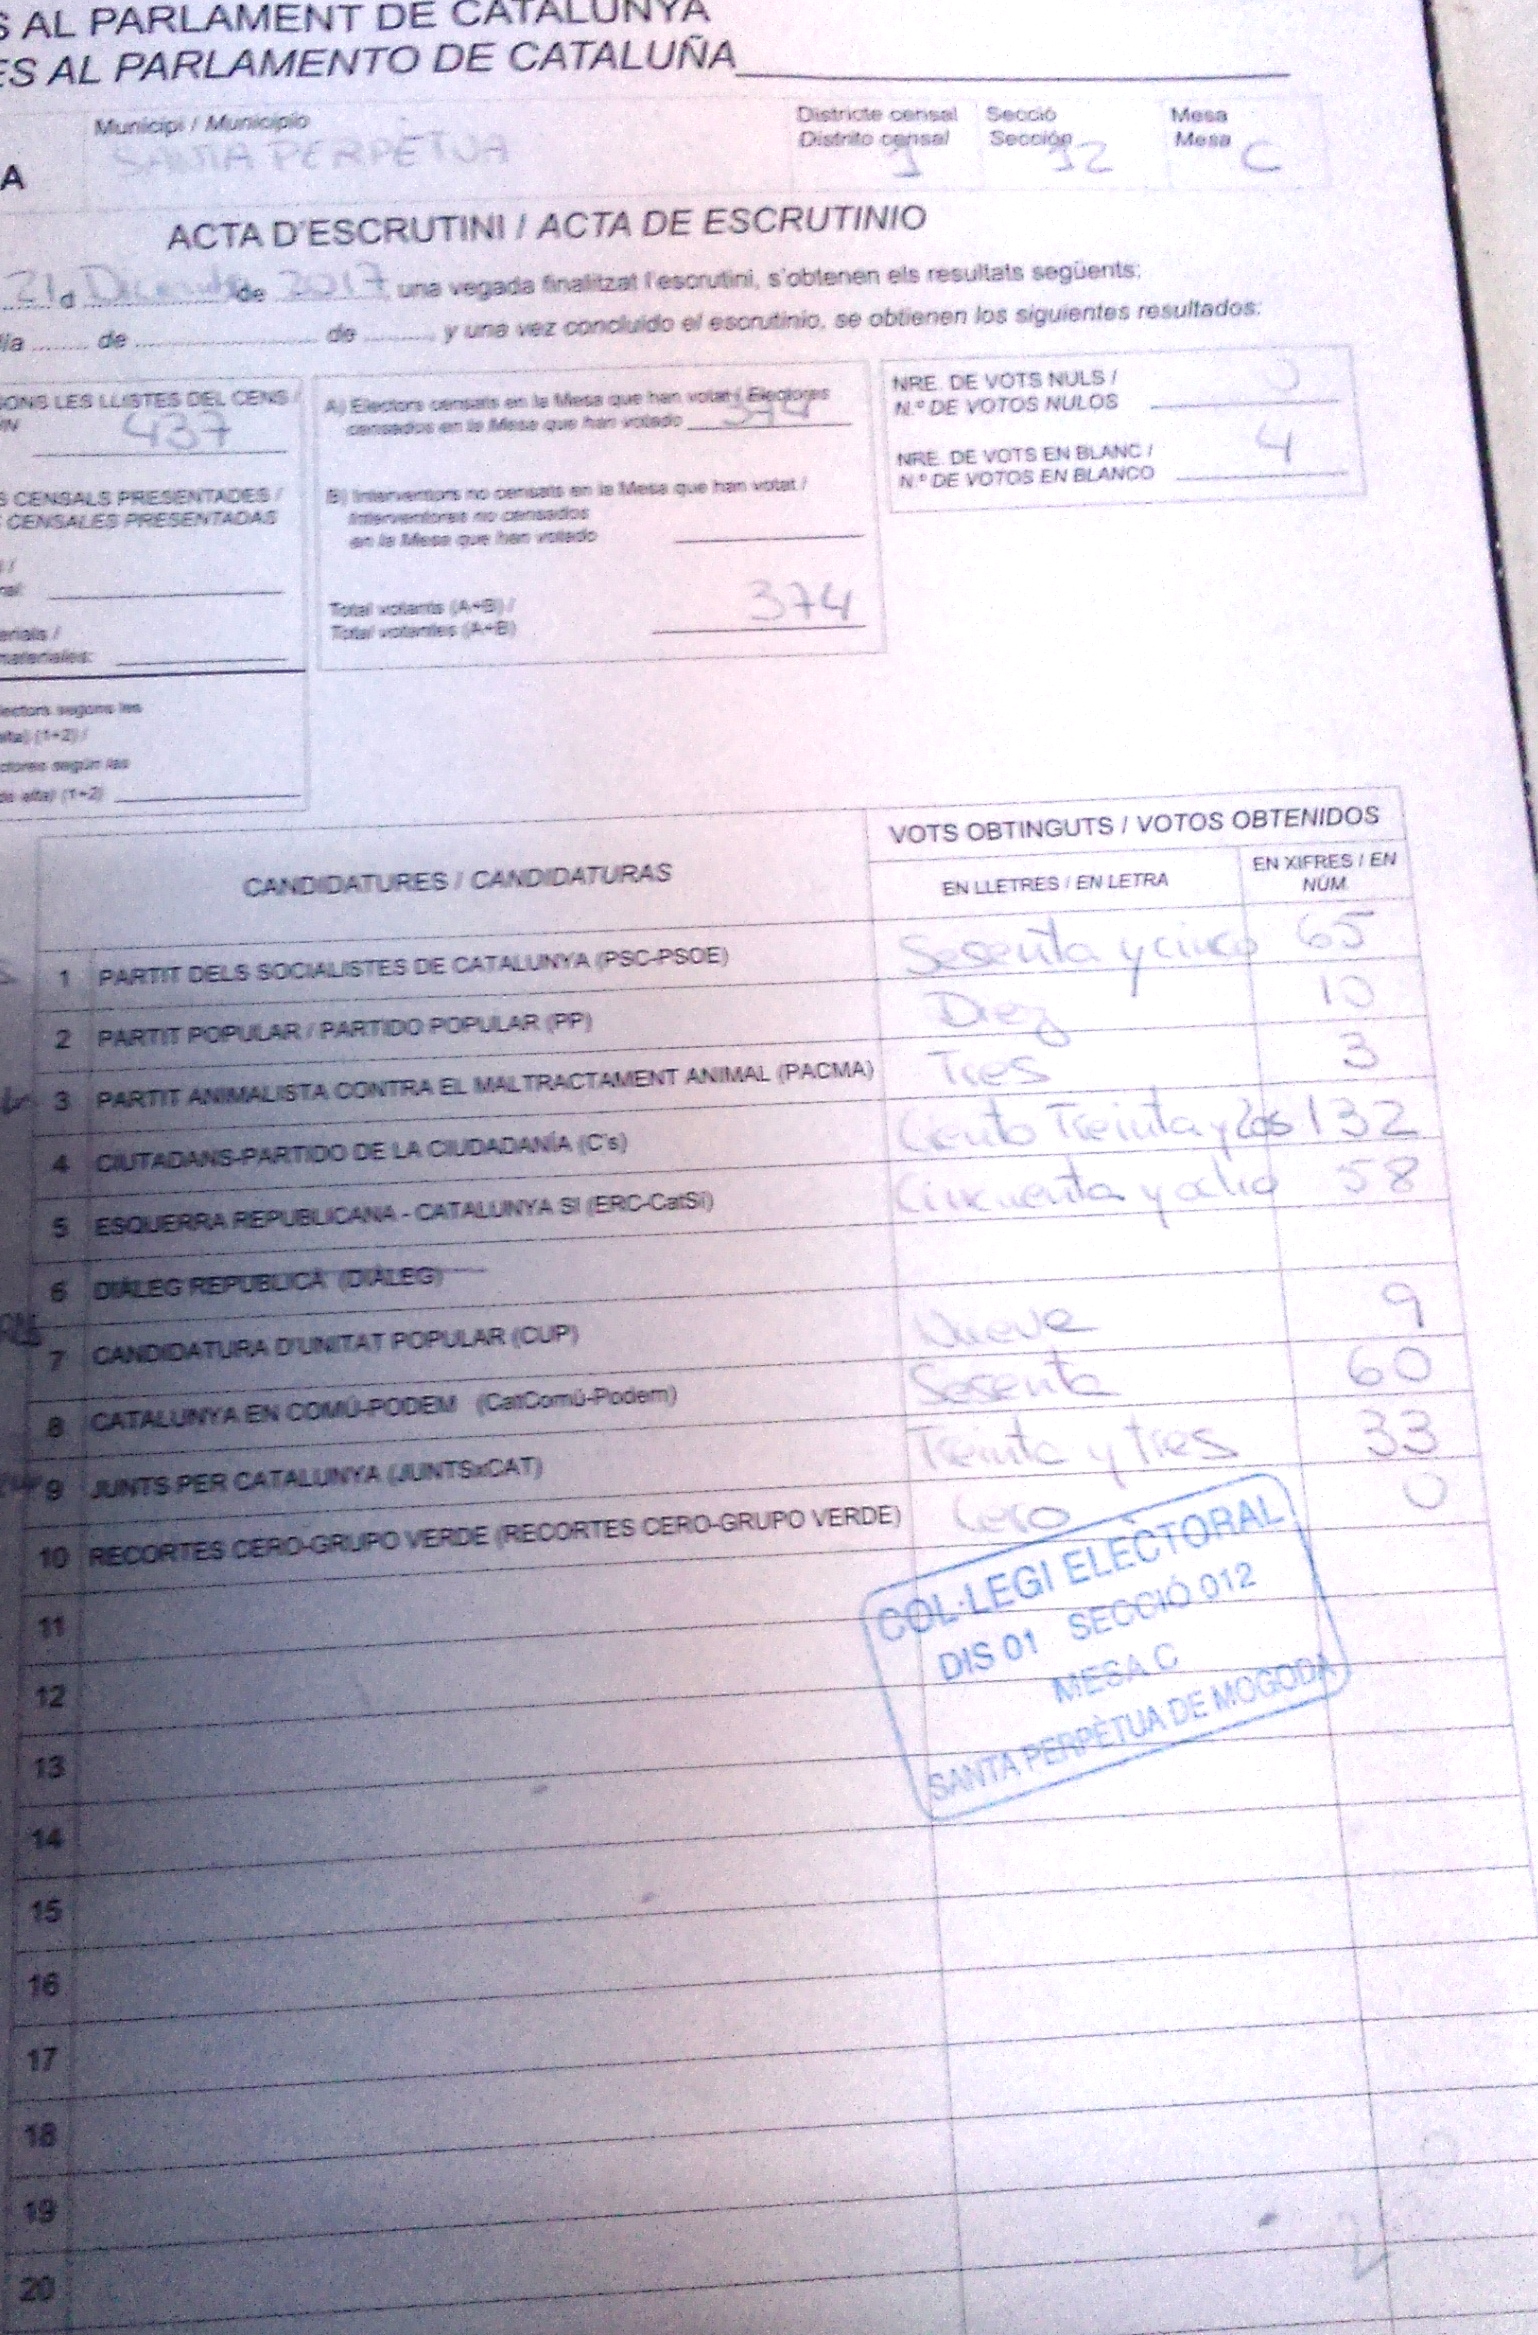 S AL PARLAMENT DE CATALUNYA
ES AL PARLAMENTO DE CATALUÑA
Municipi / Municipio
SANTA PERPETUA
Districte censal
Distrito censal
1
Secció
Sección
12
Mesa
Mesa
C
A
ACTA D'ESCRUTINI / ACTA DE ESCRUTINIO
21 d de 2017 una vegada finalitzat l'escrutini, s'obtenen els resultats següents:
ía ........ de ........ de ........ y una vez concluido el escrutinio, se obtienen los siguientes resultados:
ONS LES LLISTES DEL CENS /
437
S CENSALS PRESENTADES /
CENSALES PRESENTADAS
erials /
materiales:
lectors segons les
alta) (1+2) /
ctores según las
de alta) (1+2)
A) Electors censats en la Mesa que han votat / Electores
censados en la Mesa que han votado 374
B) Interventors no censats en la Mesa que han votat /
Interventores no censados
en la Mesa que han votado
Total votants (A+B) /
Total votantes (A+B) 374
NRE. DE VOTS NULS /
N.º DE VOTOS NULOS 0
NRE. DE VOTS EN BLANC /
N.º DE VOTOS EN BLANCO 4
CANDIDATURES / CANDIDATURAS
VOTS OBTINGUTS / VOTOS OBTENIDOS
EN LLETRES / EN LETRA
EN XIFRES / EN
NÚM.
1 PARTIT DELS SOCIALISTES DE CATALUNYA (PSC-PSOE) Sesenta y cinco 65
2 PARTIT POPULAR / PARTIDO POPULAR (PP) Diez 10
3 PARTIT ANIMALISTA CONTRA EL MALTRACTAMENT ANIMAL (PACMA) Tres 3
4 CIUTADANS-PARTIDO DE LA CIUDADANÍA (C's) Ciento Treinta y dos 132
5 ESQUERRA REPUBLICANA - CATALUNYA SÍ (ERC-CatSí) Cincuenta y ocho 58
6 DIÀLEG REPUBLICÀ (DIÀLEG)
7 CANDIDATURA D'UNITAT POPULAR (CUP) Nueve 9
8 CATALUNYA EN COMÚ-PODEM (CatComú-Podem) Sesenta 60
9 JUNTS PER CATALUNYA (JUNTSxCAT) Treinta y tres 33
10 RECORTES CERO-GRUPO VERDE (RECORTES CERO-GRUPO VERDE) Cero 0
COL·LEGI ELECTORAL
DIS 01 SECCIÓ 012
MESA C
SANTA PERPÈTUA DE MOGODA
11
12
13
14
15
16
17
18
19
20